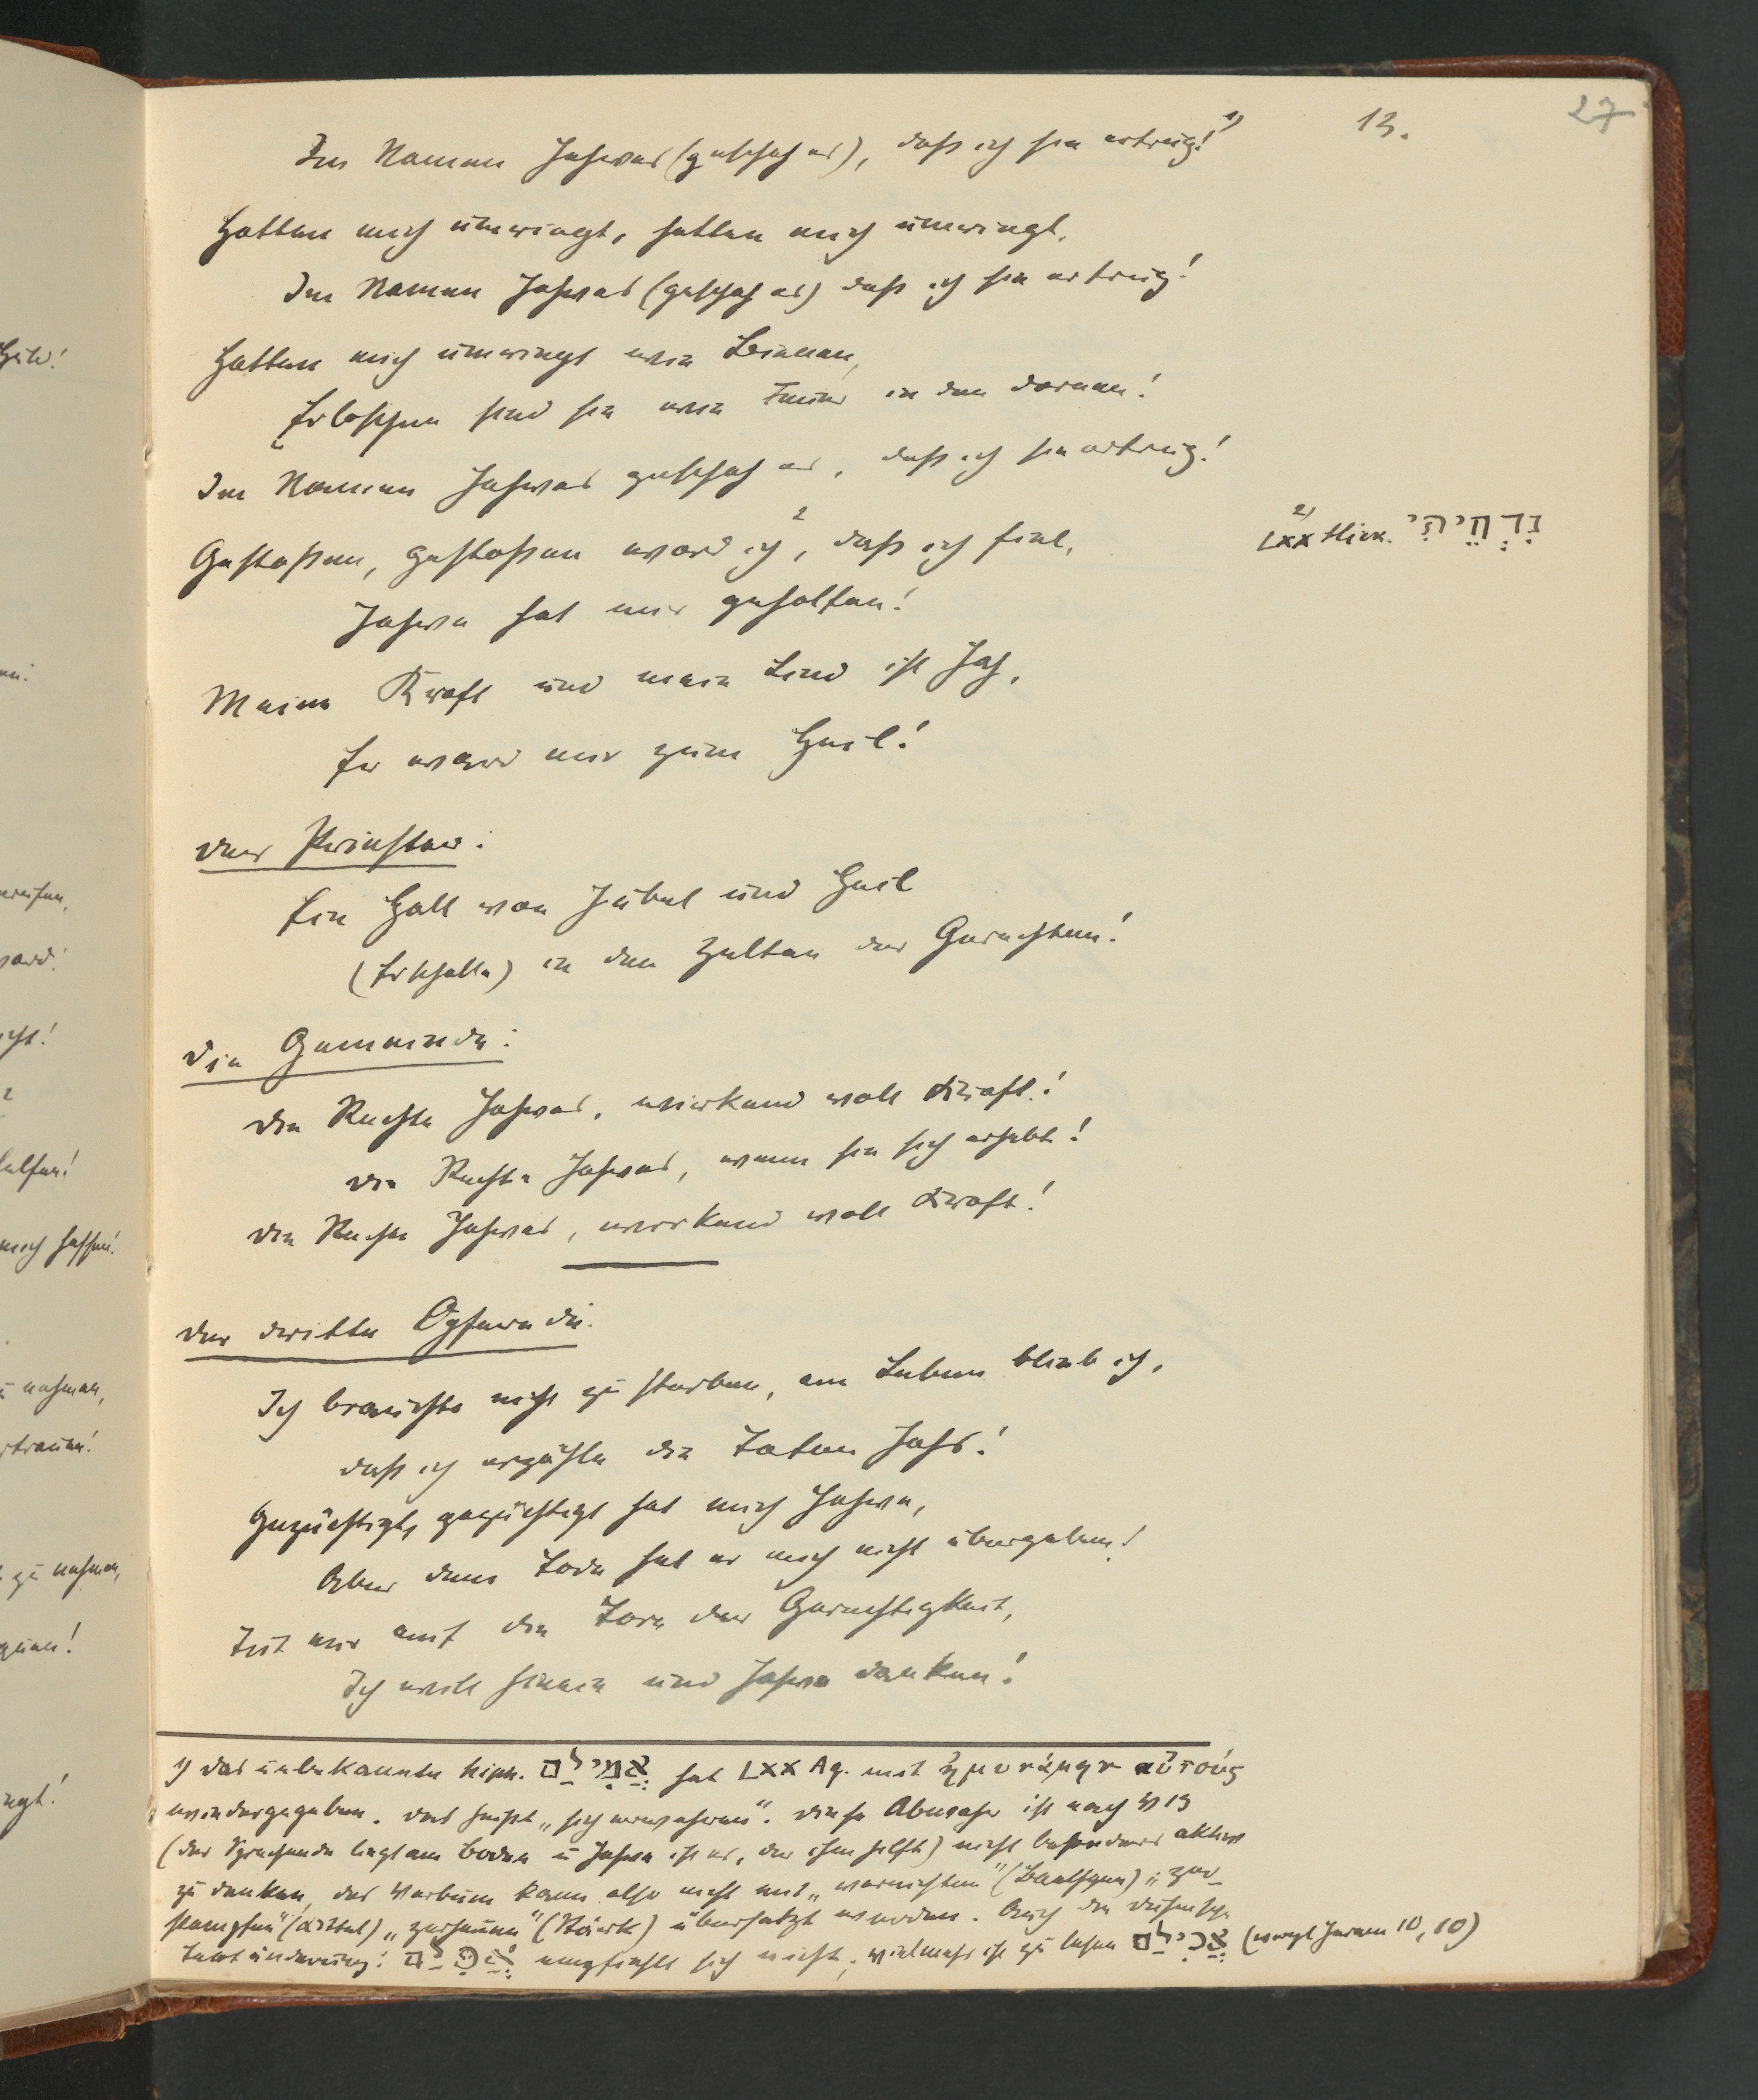 27
13.
Im Namen Jahves (geschah es), daß ich sie ertrug! 1)
Hatten mich umringt, hatten mich umringt,
Im Namen Jahves (geschah es) daß ich sie ertrug!
Hatten mich umringt wie Bienen,
Erloschen sind sie wie Feuer in den Dornen!
Im Namen Jahves geschah es, daß ich sie ertrug!
Gestoßen, gestoßen ward ich 2, daß ich fiel,
2) LXX Hier. נִדְחֵיתִי
Jahve hat mir geholfen!
Meine Kraft und mein Lied ist Jah,
Er ward mir zum Heil!
Der Priester:
Ein Hall von Jubel und Heil
(Erschalle) in den Zelten der Gerechten!
Die Gemeinde:
Die Rechte Jahves, wirkend voll Kraft!
Die Rechte Jahves, wenn sie sich erhebt!
Die Rechte Jahves, wirkend voll Kraft!
Der dritte Opfernde.
Ich brauchte nicht zu sterben, am Leben blieb ich,
daß ich erzähle die Taten Jahs!
Gezüchtigt, gezüchtigt hat mich Jahve,
Aber dem Tode hat er mich nicht übergeben!
Tut mir auf die Tore der Gerechtigkeit,
Ich will hinein und Jahve danken!
1) Das unbekannte hiph. אֲמִילַם hat LXX Aq. mit ἠμυνάμην αὐτούς
wiedergegeben. Das heißt „sich erwehren". Diese Abwehr ist nach V 13
(der Sprechende liegt am Boden u Jahve ist es, der ihm hilft) nicht besonders aktiv
zu denken, das Verbum kann also nicht mit „vernichten" (Baethgen) „zer-
stampfen" (Kittel) „zerhauen" (Stärk) übersetzt werden. Auch die Duhmsche
Textänderung: empfiehlt sich nicht; vielmehr ist zu lesen אֲכִילַם (vergl Jerem 10, 10)